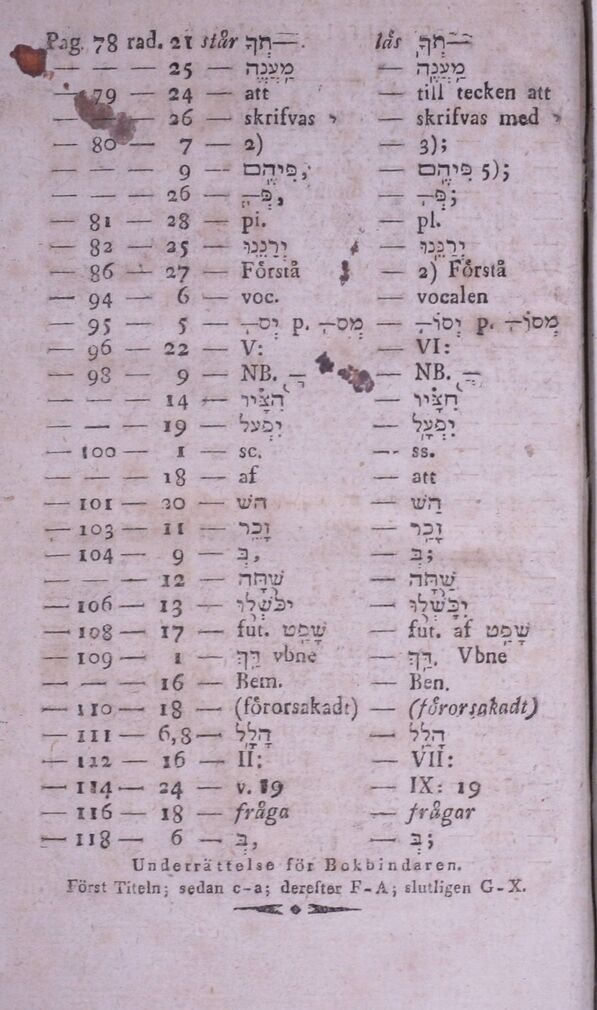 Pag. 78 rad. 21 står תְךָ—. lås תְךָ—
— — — 25 — מַעֲנֶה — מַעֲנֶה
— 79 — 24 — att — till tecken att
— — — 26 — skrifvas — skrifvas med
— 80 — 7 — 2) — 3);
— — — 9 — פִּיהֶם, — פִּיהֶם 5);
— — — 26 — —, — —;
— 81 — 28 — pi. — pl.
— 82 — 25 — —
— 86 — 27 — Förstå — 2) Förstå
— 94 — 6 — voc. — vocalen
— 95 — 5 — p. — p.
— 96 — 22 — V: — VI:
— 98 — 9 — NB. — — NB. —
— — — 14 — —
— — — 19 — יִפְעל — יִפְעָל
— 100 — 1 — sc. — ss.
— — — 18 — af — att
— 101 — 20 — הש — הַש
— 103 — 11 — —
— 104 — 9 — בְּ, — בְּ;
— — — 12 — —
— 106 — 13 — —
— 108 — 17 — fut. שָׁפַט — fut. af שָׁפַט
— 109 — 1 — vbne — Vbne
— — — 16 — Bem. — Ben.
— 110 — 18 — (förorsakadt) — (förorsakadt)
— 111 — 6,8 — הָלָל — הָלַל
— 112 — 16 — II: — VII:
— 114 — 24 — v. 19 — IX: 19
— 116 — 18 — fråga — frågar
— 118 — 6 — בְּ, — בְּ;
Underrättelse för Bokbindaren.
Först Titeln; sedan c-a; derefter F-A; slutligen G-X.